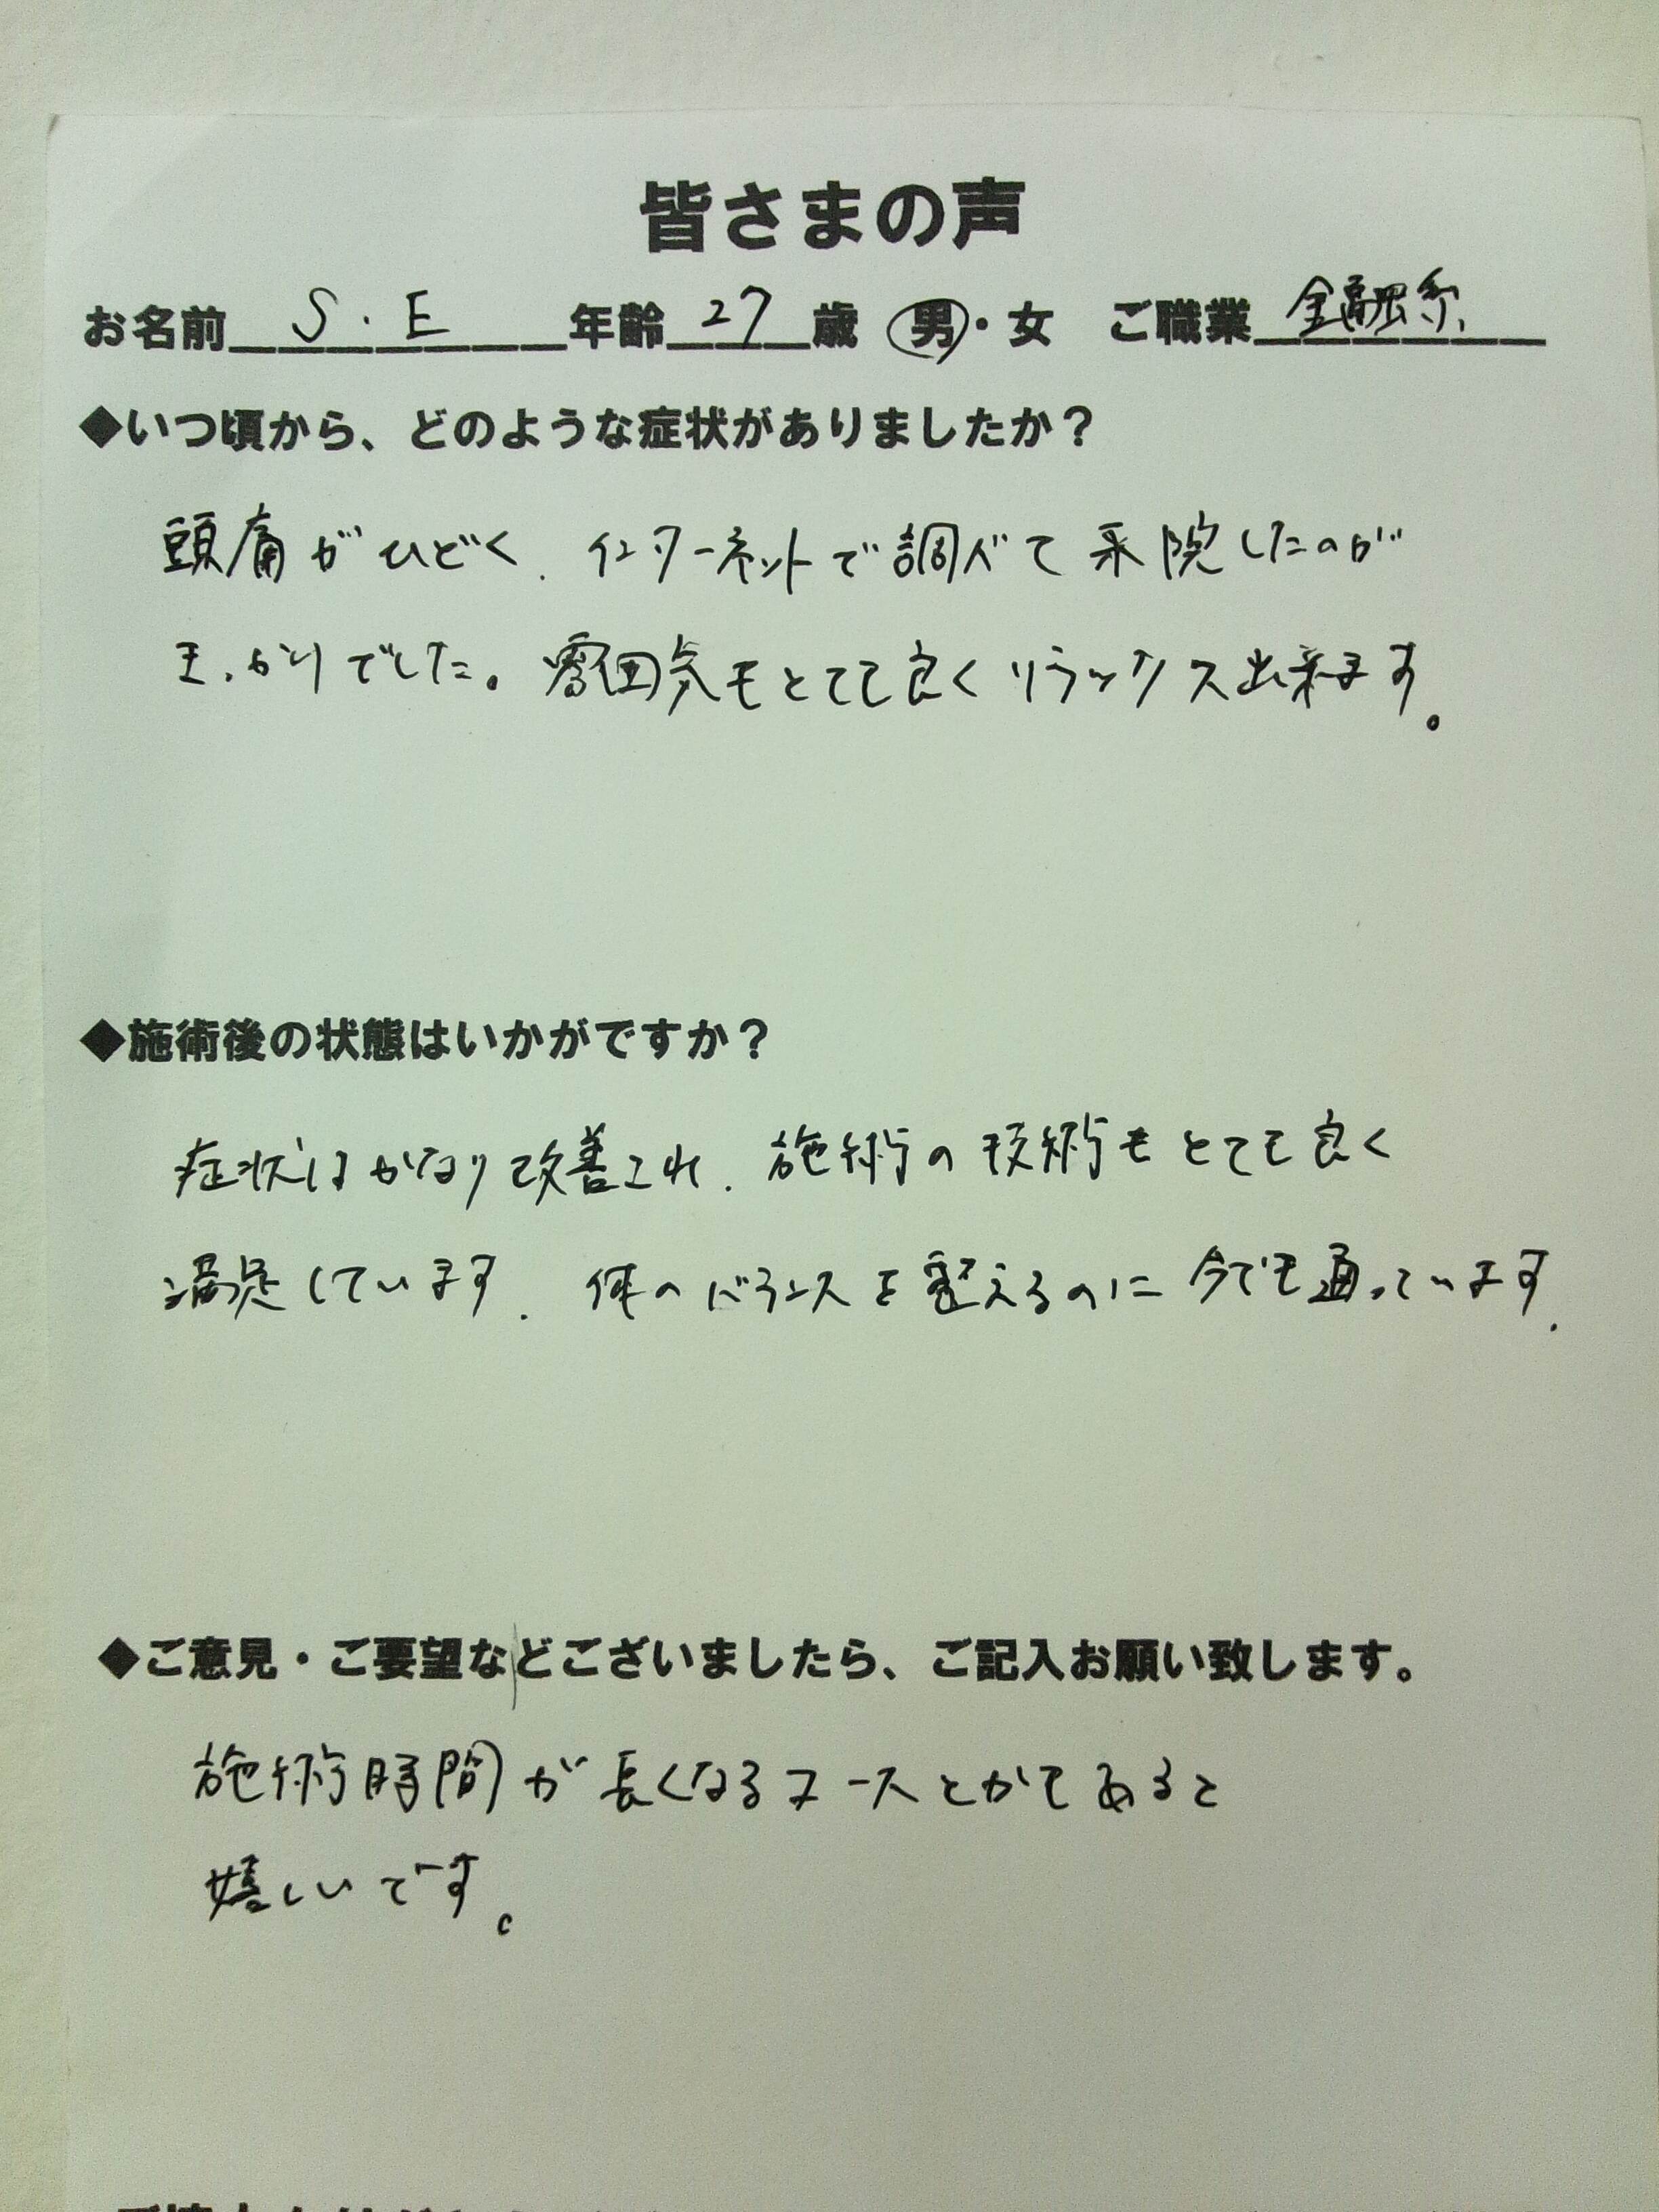 皆さまの声
お名前 S・E 年齢 27 歳 男・女 ご職業 金融系
◆いつ頃から、どのような症状がありましたか？
頭痛がひどく、インターネットで調べて来院したのが
きっかけでした。雰囲気もとても良くリラックス出来ます。
◆施術後の状態はいかがですか？
症状はかなり改善され、施術の技術もとても良く
満足しています。体のバランスを整えるのに今でも通っています。
◆ご意見・ご要望などございましたら、ご記入お願い致します。
施術時間が長くなるコースとかもあると
嬉しいです。